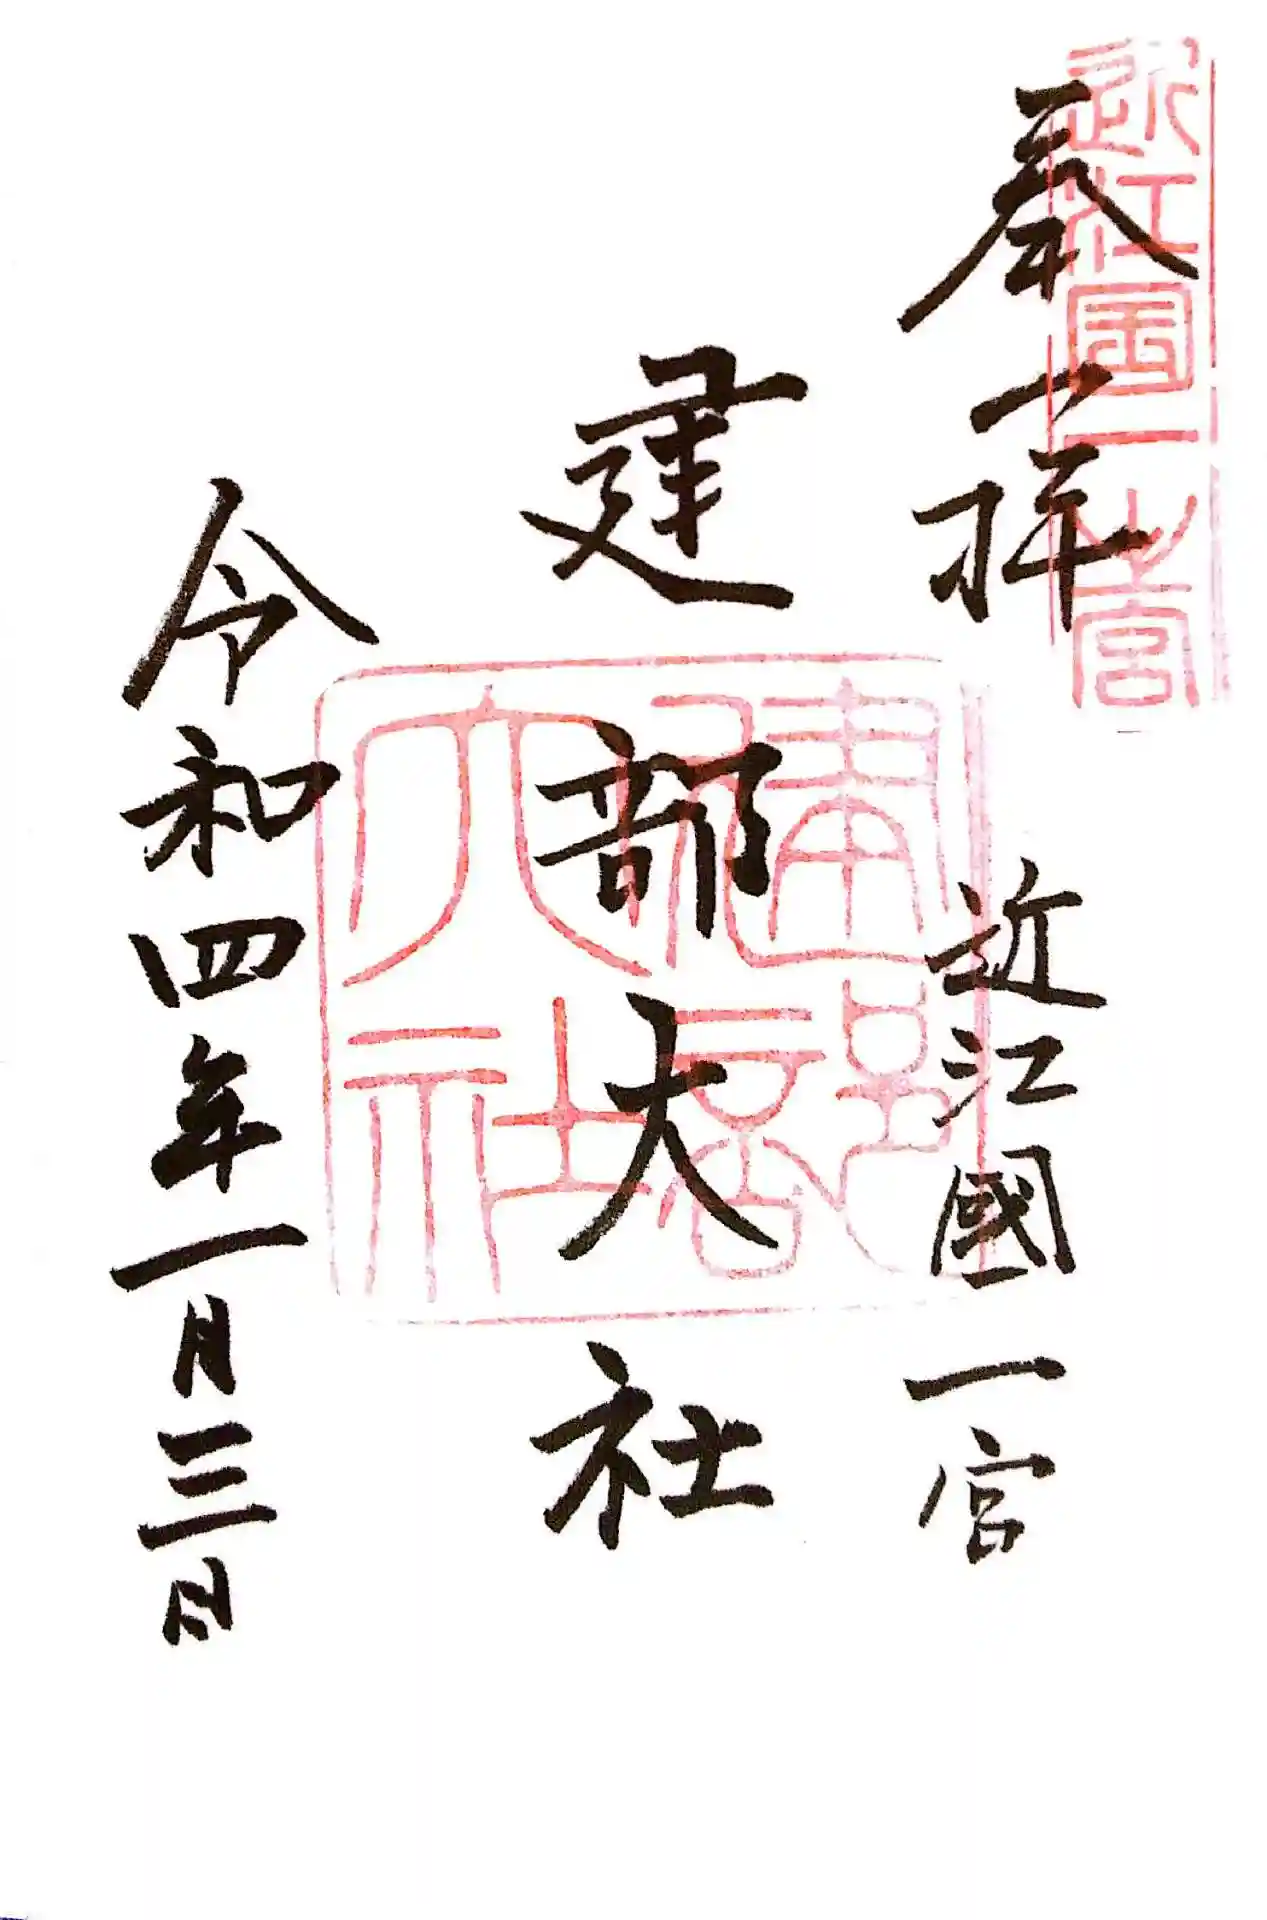 近江国一之宮
奉拝
近江國一宮
建部大社
建部大社
令和四年一月三日